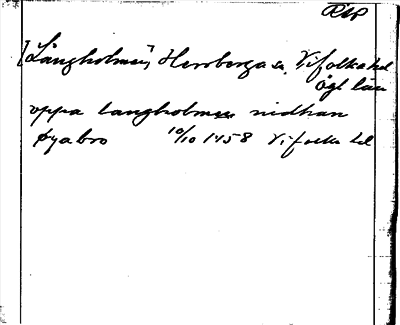 RAP
[Långholmen] Herrberga sn. Vifolka hd
Ögl län
oppa langholmen nidhan
Øyabro 10/10 1458 Vifolka hd